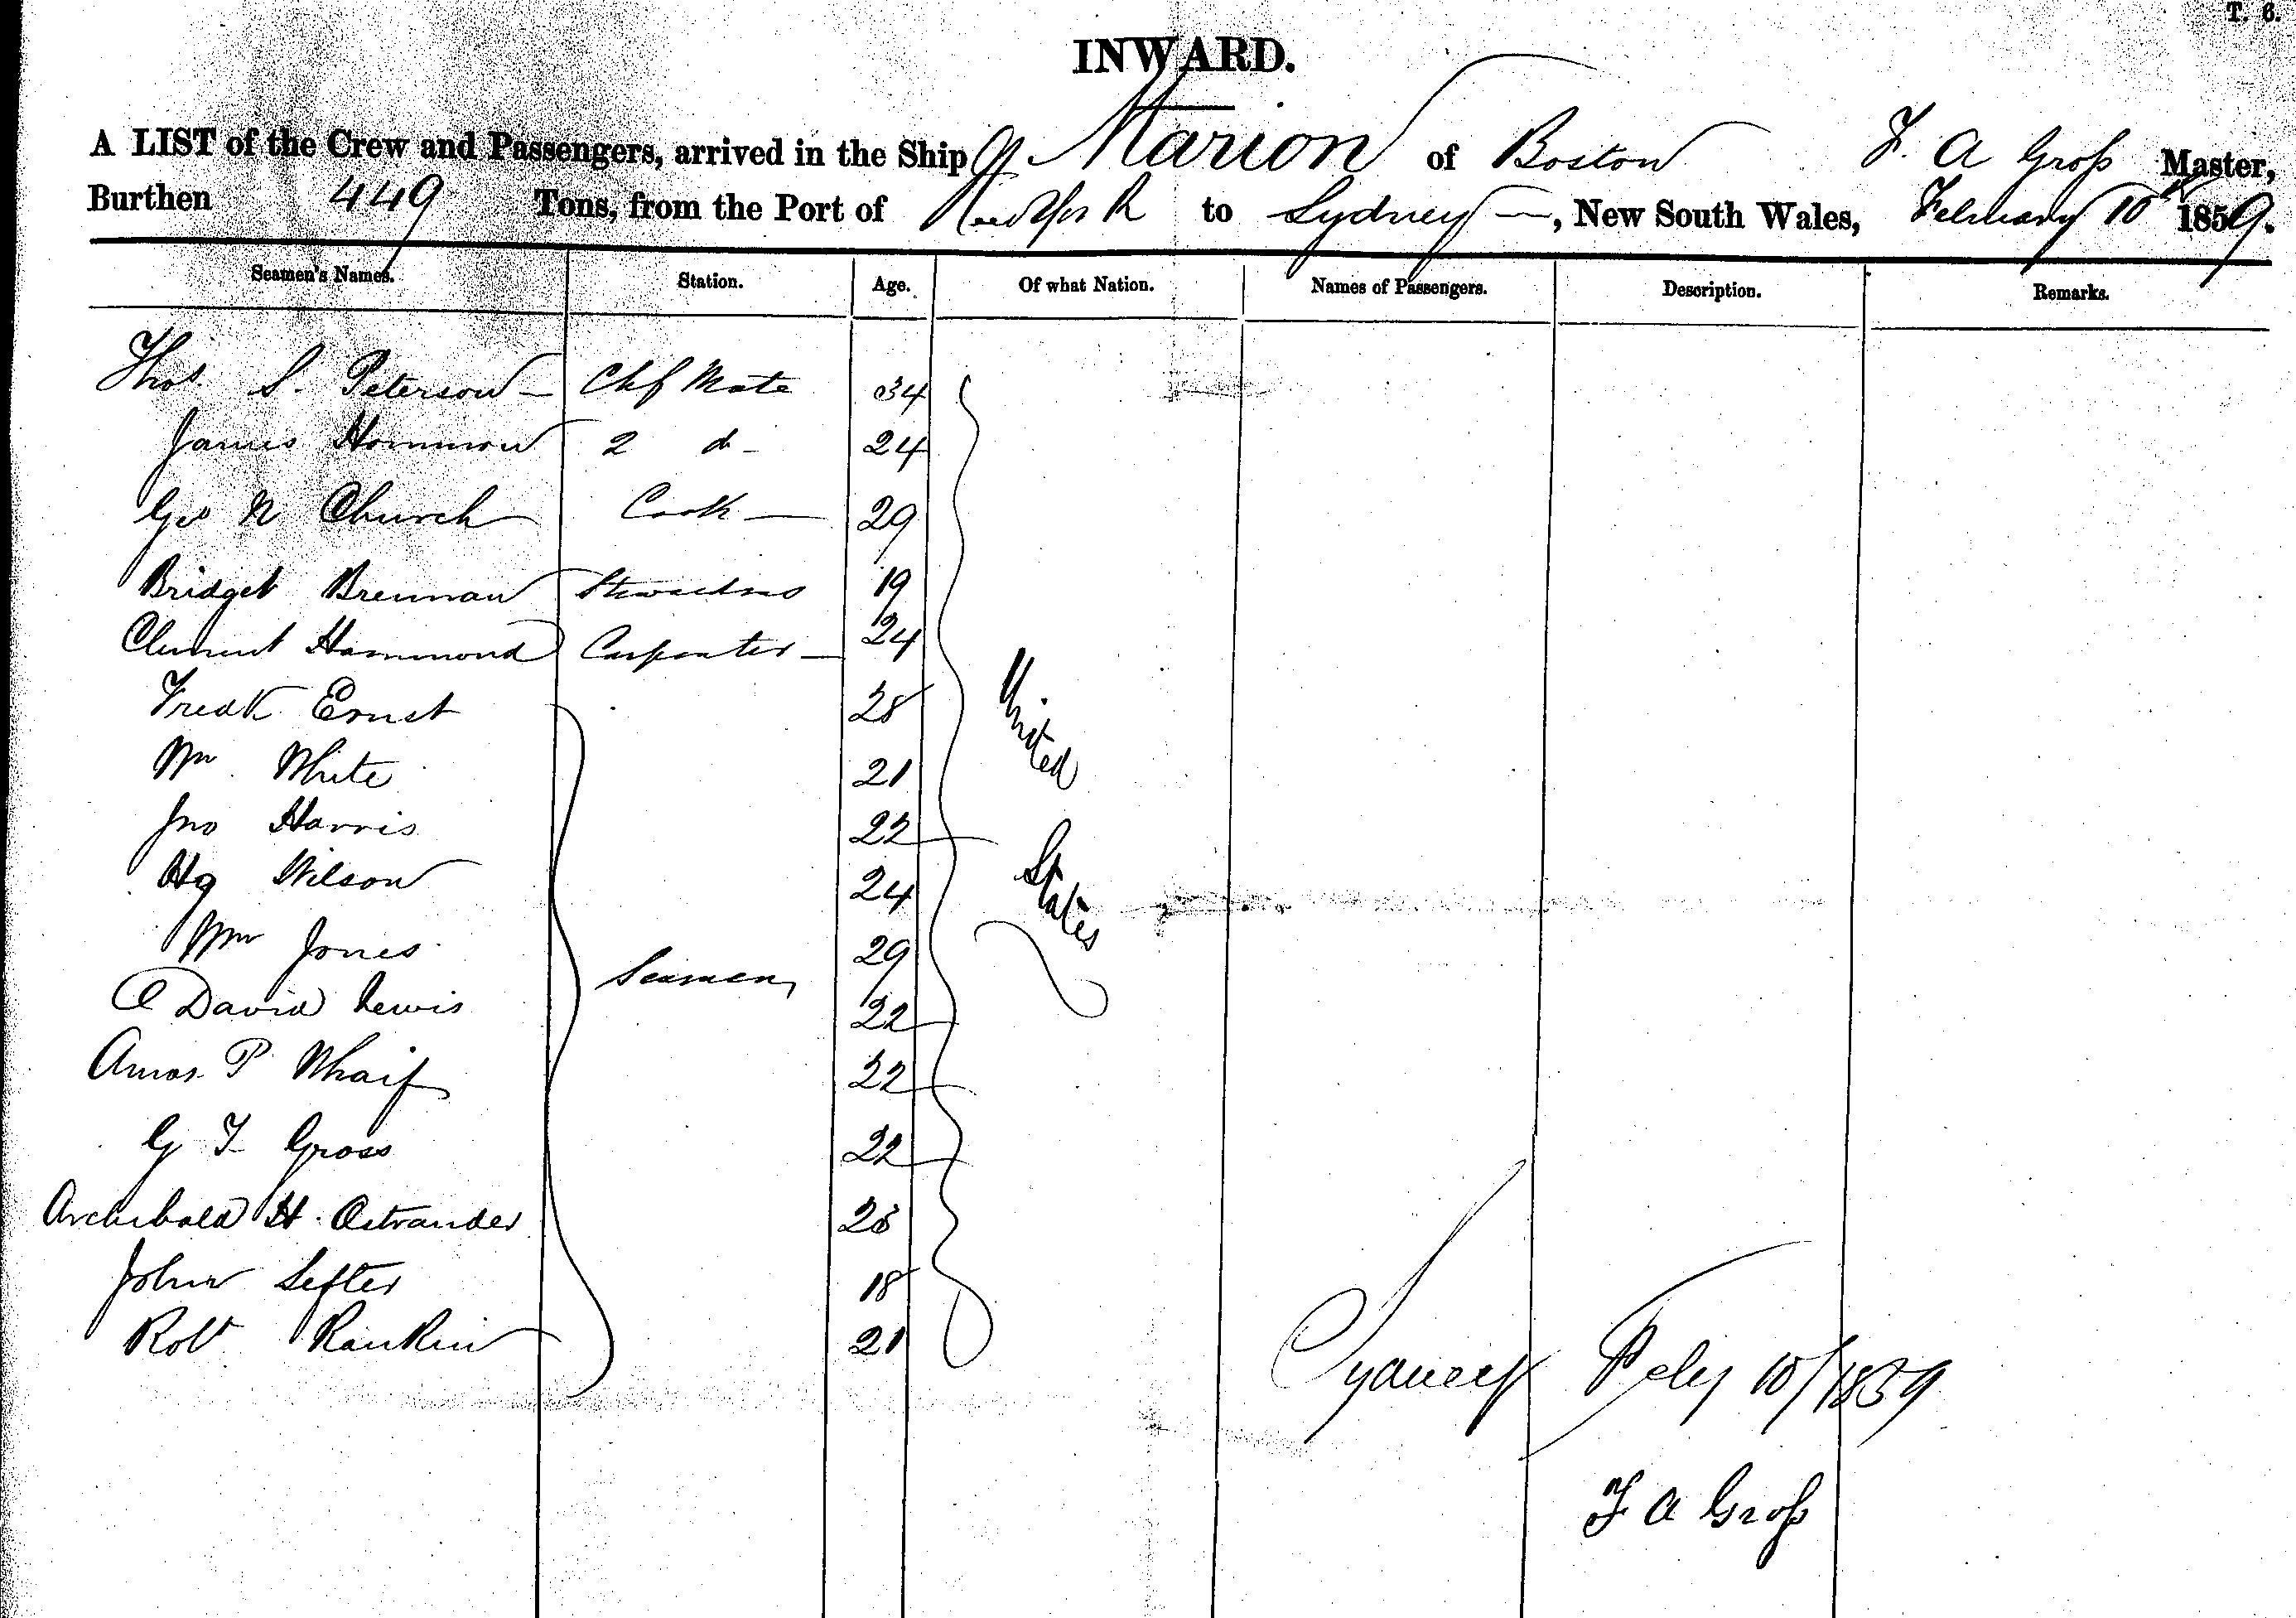 T. 6.
INWARD.
A LIST of the Crew and Passengers, arrived in the Ship Marion of Boston F. A Gross Master,
Burthen 449 Tons, from the Port of New York to Sydney, New South Wales, February 10th 1859.
Seamen's Names. Station. Age. Of what Nation. Names of Passengers. Description. Remarks.
Thos. S. Peterson Chf Mate 34
James 2 do 24
Geo N Church Cook 29
Bridget Brennan Stewardess 19
Clement Hammond Carpenter 24
Fredk Ernst 28
Wm White 21
Jno Harris 22
Hy Wilson 24
Wm Jones 29
David Lewis 22
Amos P Wharf 22
G F Gross 22
Archibald H. Ostrander
John 18
Robt Rankin 21
Seamen
United
States
Sydney Feby 10/1859
F A Gross